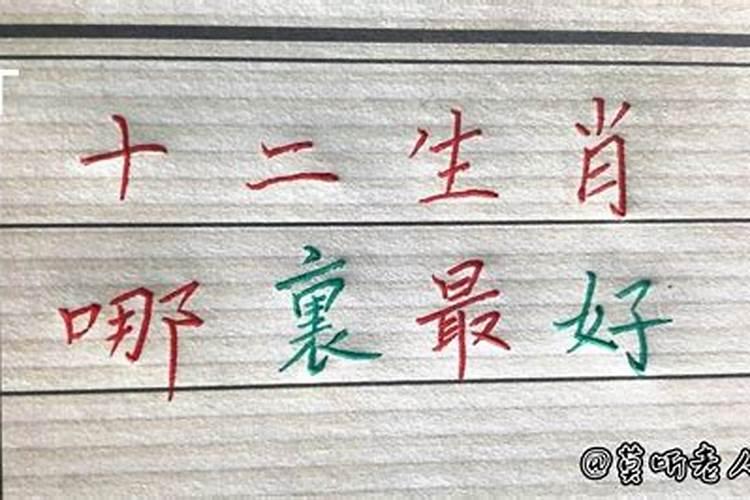 十二生肖
哪裏最好
@莫听老人